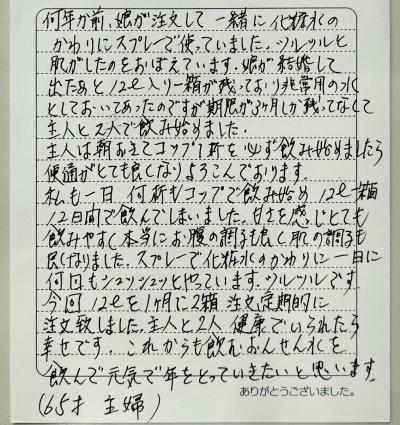 何年か前、娘が注文して一緒に化粧水の
かわりにスプレーで使っていました。ツルツルと
肌がしたのをおぼえています。娘が結婚して
出たあと12ℓ入り一箱が残っており非常用の水
としておいてあったのですが期限が3ヶ月しか残ってなくて
主人と2人で飲み始めました。
主人は朝おきてコップ1杯を必ず飲み始めましたら
便通がとても良くなりよろこんでおります。
私も一日、何杯もコップで飲み始め12ℓ一箱
12日間で飲んでしまいました。甘さを感じとても
飲みやすく本当にお腹の調子も良く肌の調子も
良くなりました。スプレーで化粧水のかわりに一日に
何回もシュッシュッとやっています。ツルツルです
今回12ℓを1ヶ月に2箱注文定期的に
注文致しました。主人と2人健康でいられたら
幸せです。これからも飲むおんせん水を
飲んで元気で年をとっていきたいと思います。
ありがとうございました。
(65才 主婦)